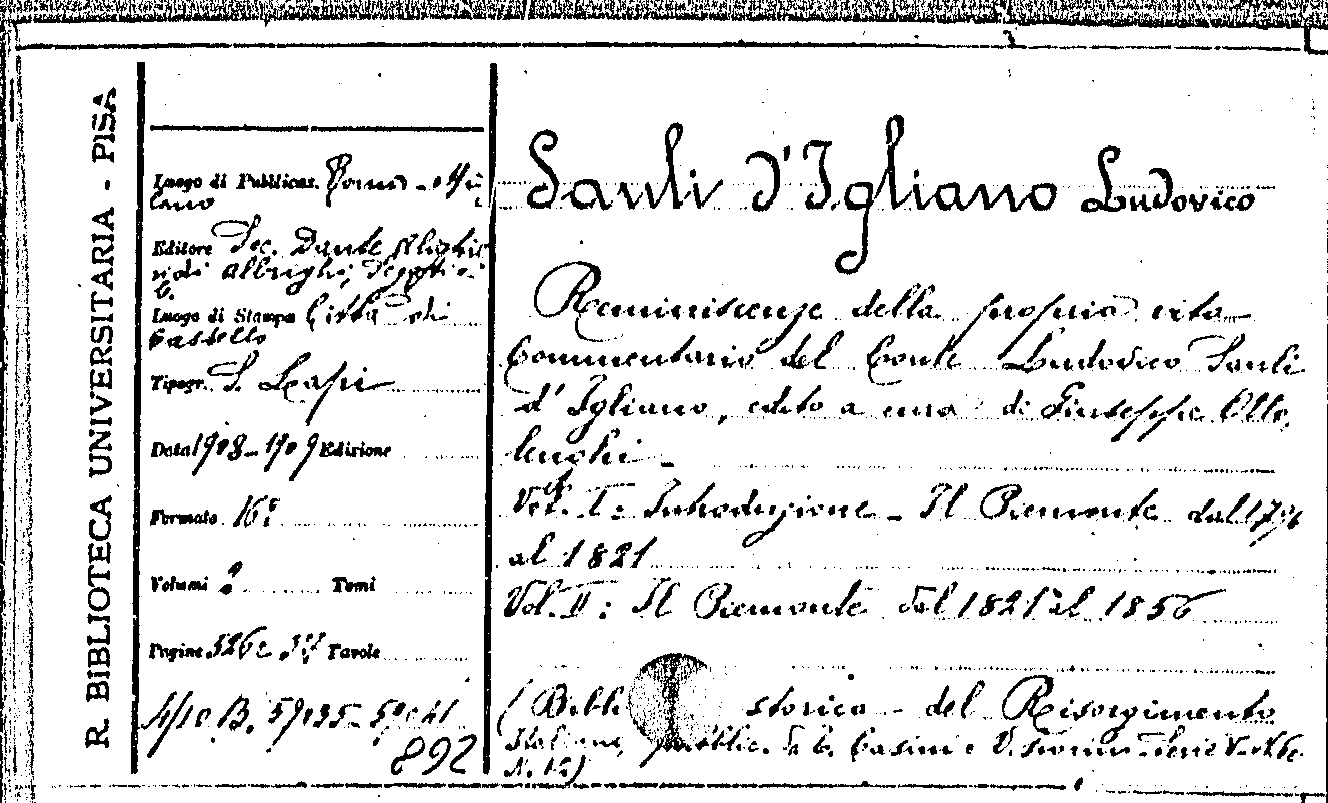 R. BIBLIOTECA UNIVERSITARIA - PISA
Luogo di Pubblicaz. Roma - Mi
lano
Editore Soc. Dante Alighie
ri di Albrighi, Segati e
C.
Luogo di Stampa Città di
Castello
Tipogr. S. Lapi
Data 1908-1909 Edizione
Formato 16º
Volumi 2 Tomi
Pagine 526 e Tavole
B.
892
Sauli d'Igliano Ludovico
Reminiscenze della propria vita
Commentario del Conte Ludovico Sauli
d'Igliano, edito a cura di Giuseppe Otto
lenghi -
Vol. I: Introduzione - Il Piemonte dal 1796
al 1821
Vol. II: Il Piemonte dal 1821 al 1856
(Bibli storica - del Risorgimento
Italiano, pubblic. da T. Casini e V. Fiorini - Serie V